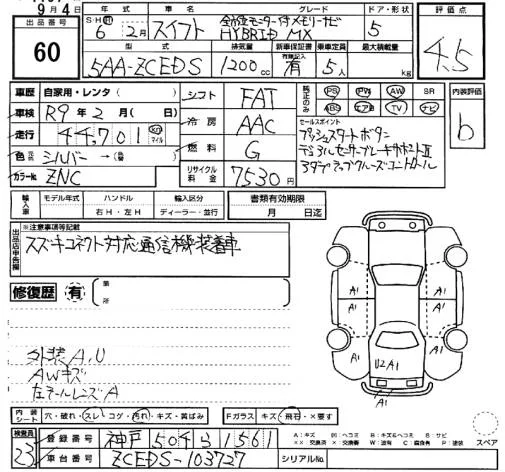 9月4日
年式
車名
グレード
ドア・形状
評価点
S・H・R
6年 2月
スイフト
全方位モニター付メモリーナビ
HYBRID MX
5
4.5
出品番号
60
型式
排気量
新車保証書
有無記入
乗車定員
最大積載量
5AA-ZCEDS
1200cc
有
5人
kg
車歴
自家用・レンタ( )
シフト
FAT
純正のみ
PS PW AW SR
ABS エアB TV ナビ
内装評価
b
車検
R9年2月( 日)
走行
44,701
km
マイル
冷房
AAC
セールスポイント
プッシュスタートボタン
デュアルセンサーブレーキサポートⅡ
アダプティブクルーズコントロール
色
シルバー
燃料
G
カラーNo.
ZNC
リサイクル
料金
7530円
輸入車
モデル年式
ハンドル
右H・左H
輸入区分
ディーラー・並行
書類有効期限
月 日迄
出品店申告欄
※注意事項等記載
スズキコネクト対応通信機装着車
修復歴
有
箇所
外装A,U
AWキズ
左テールレンズA
A1
A1 A1
A1
A1 A1
U2 A1
A1
内装
シート
穴・破れ・スレ コゲ・汚れ・キズ・黄ばみ
Fガラス
キズ・飛石・×要す
スペア
A:キズ
U:ヘコミ
B:キズ&ヘコミ
S:サビ
XX:交換済
X:要交換
W:波有
C:腐食有
P:塗装
検査員
23
登録番号
神戸 504 ら 1561
車台番号
ZCEDS-103727
シリアルNo.